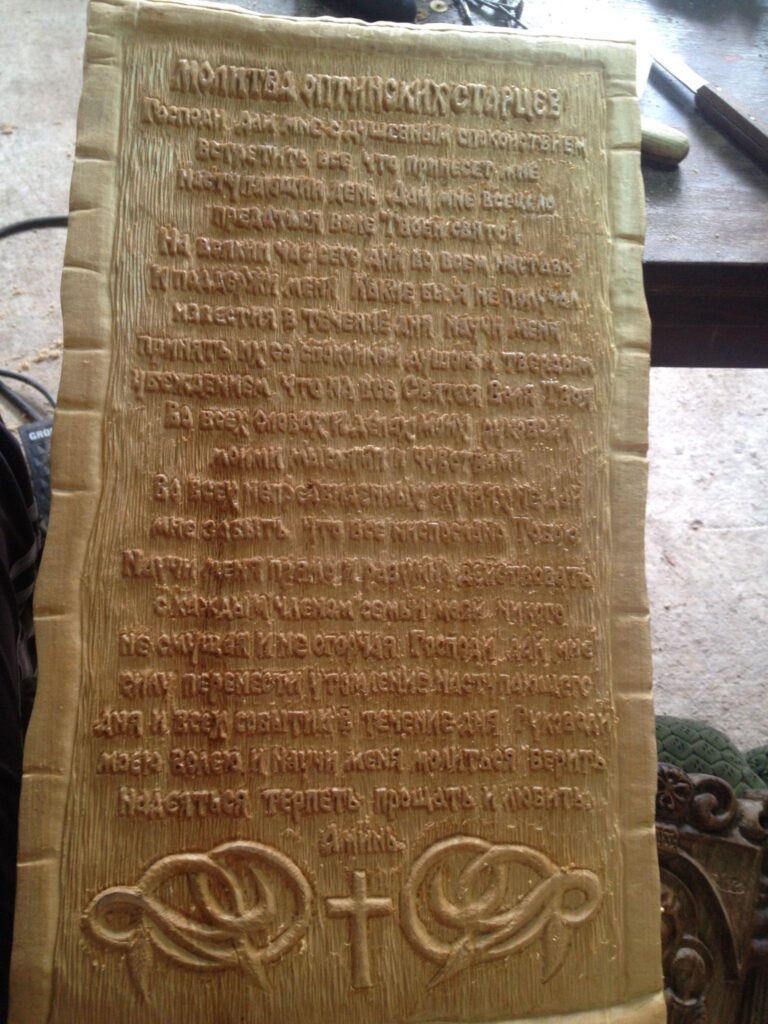 МОЛИТВА ОПТИНСКИХ СТАРЦЕВ
Господи, дай мне с душевным спокойствием
встретить все что принесет мне
наступающий день. Дай мне всецело
предаться воле Твоей святой.
На всякий час сего дня во всем наставь
и поддержи меня. Какие бы я не получал
известия в течение дня научи меня
принять их со спокойной душою и твердым
убеждением, что на все Святая Воля Твоя
Во всех словах и делах моих руководи
моими мыслями и чувствами
Во всех непредвиденных случаях не дай
мне забыть что все ниспослано Тобою.
Научи меня прямо и разумно действовать
с каждым членом семьи моей никого
не смущая и не огорчая. Господи, дай мне
силу перенести утомление наступающего
дня и всех событий в течение дня. Руководи
моею волею и научи меня молиться верить
надеяться терпеть прощать и любить.
Аминь.
GRO